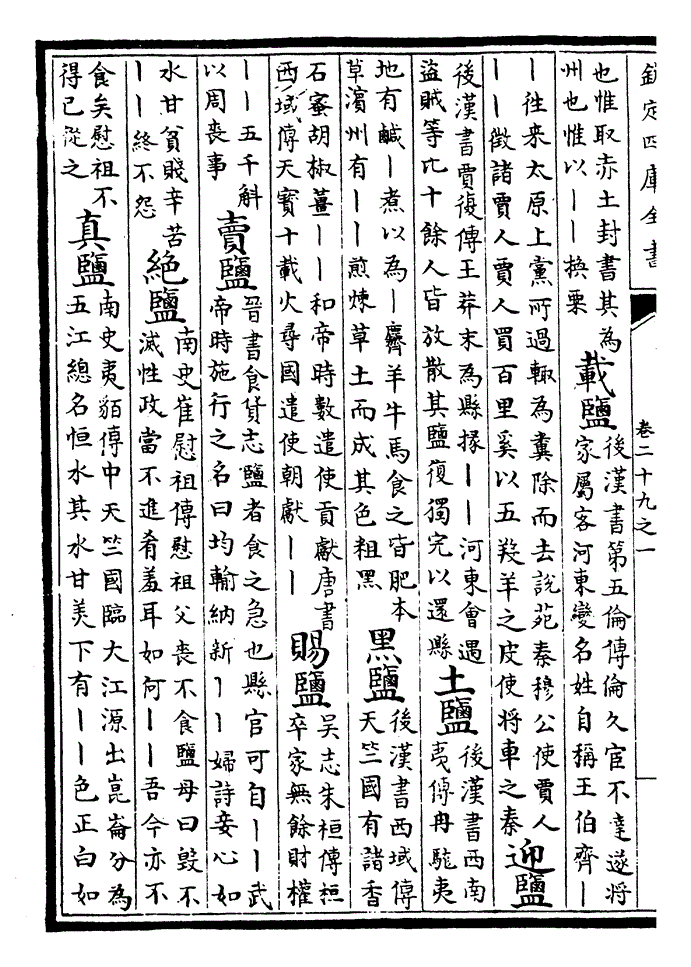 欽定四庫全書
卷二十九之一
也惟取赤土封書其為
州也惟以丨丨換粟
載鹽
後漢書第五倫傳倫久宦不達遂將
家屬客河東變名姓自稱王伯齊丨
丨往来太原上黨所過輒為糞除而去說苑秦穆公使賈人
丨丨徵諸賈人賈人買百里奚以五羖羊之皮使將車之秦
迎鹽
後漢書賈復傳王莽末為縣掾丨丨河東會遇
盜賊等比十餘人皆放散其鹽復獨完以還縣
土鹽
後漢書西南
夷傳冉駹夷
地有鹹丨煮以為丨麡羊牛馬食之皆肥本
草濱州有丨丨煎煉草土而成其色粗黑
黑鹽
後漢書西域傳
天竺國有諸香
石蜜胡椒薑丨丨和帝時數遣使貢獻唐書
西域傳天寳十載火尋國遣使朝獻丨丨
賜鹽
吴志朱桓傳桓
卒家無餘財權
丨丨五千斛
以周喪事
賣鹽
晉書食貨志鹽者食之急也縣官可自丨丨武
帝時施行之名曰均輸納新丨丨婦詩妾心如
水甘貧賤辛苦
丨丨終不怨
絶鹽
南史崔慰祖傳慰祖父喪不食鹽母曰毁不
滅性政當不進肴羞耳如何丨丨吾今亦不
食矣慰祖不
得已從之
真鹽
南史夷貊傳中天竺國臨大江源出崑崙分為
五江總名恒水其水甘美下有丨丨色正白如